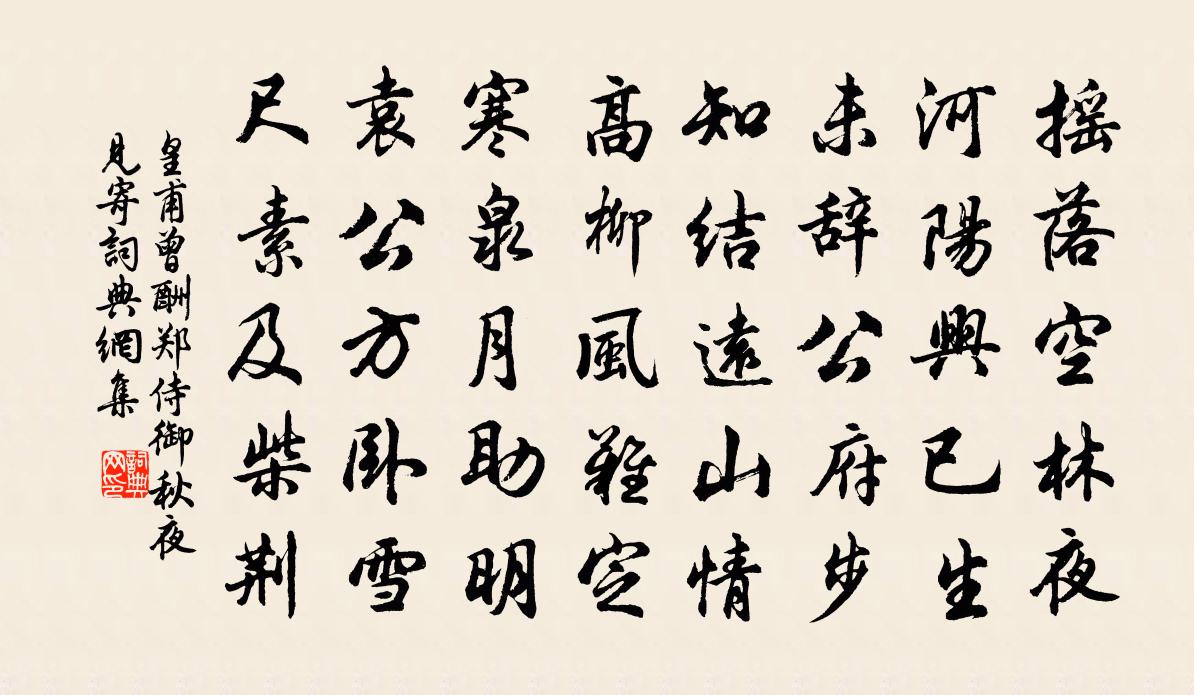 摇落空林夜
河陽興已生
未辞公府步
知结遠山情
高柳風難定
寒泉月助明
袁公方卧雪
尺素及柴荆
皇甫曾酬郑侍御秋夜
見寄詞典網集
詞典网印